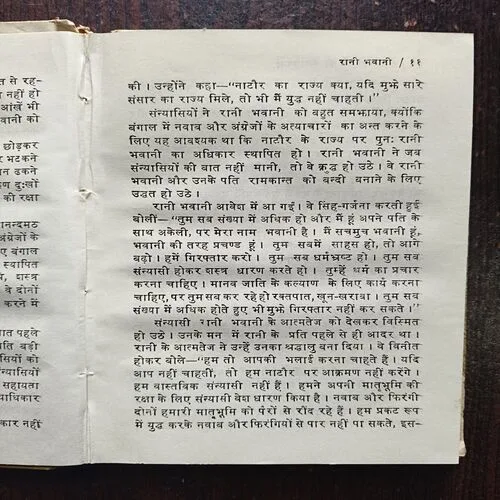 त से रह-
नहीं हो
आंखें भी
वानी को
छोड़कर
र भटकने
तन ढकने
ण दुःखों
की रक्षा
नन्दमठ
अंग्रेजों के
ए बंगाल
स्थापित
वे, शस्त्र
देश के
करने में
ात पहले
ति बड़ी
यासियों को
यासियों की
सहायता
याधिकार
कार नहीं
रानी भवानी / ११
की । उन्होंने कहा—"नाटौर का राज्य क्या, यदि मुझे सारे
संसार का राज्य मिले, तो भी मैं युद्ध नहीं चाहती ।"
संन्यासियों ने रानी भवानी को बहुत समझाया, क्योंकि
बंगाल में नवाब और अंग्रेजों के अत्याचारों का अन्त करने के
लिए यह आवश्यक था कि नाटौर के राज्य पर पुनः रानी
भवानी का अधिकार स्थापित हो । रानी भवानी ने जब
संन्यासियों की बात नहीं मानी, तो वे क्रुद्ध हो उठे । वे रानी
भवानी और उनके पति रामकान्त को बन्दी बनाने के लिए
उद्यत हो उठे ।
रानी भवानी आवेश में आ गईं । वे सिंह-गर्जना करती हुई
बोलीं—"तुम सब संख्या में अधिक हो और मैं हूं अपने पति के
साथ अकेली, पर मेरा नाम भवानी है । मैं सचमुच भवानी हूं,
भवानी की तरह प्रचण्ड हूं । तुम सबमें साहस हो, तो आगे
बढ़ो । हमें गिरफ्तार करो । तुम सब धर्मभ्रष्ट हो । तुम सब
संन्यासी होकर शस्त्र धारण करते हो । तुम्हें धर्म का प्रचार
करना चाहिए । मानव जाति के कल्याण के लिए कार्य करना
चाहिए, पर तुम सब कर रहे हो रक्तपात, खून-खराबा । तुम सब
संख्या में अधिक होते हुए भी मुझे गिरफ्तार नहीं कर सकते ।"
संन्यासी रानी भवानी के आत्मतेज को देखकर विस्मित
हो उठे । उनके मन में रानी के प्रति पहले से ही आदर था ।
रानी के आत्मतेज ने उन्हें उनका श्रद्धालु बना दिया । वे विनीत
होकर बोले—"हम तो आपकी भलाई करना चाहते हैं । यदि
आप नहीं चाहतीं, तो हम नाटौर पर आक्रमण नहीं करेंगे ।
हम वास्तविक संन्यासी नहीं हैं । हमने अपनी मातृभूमि की
रक्षा के लिए संन्यासी वेश धारण किया है । नवाब और फिरंगी
दोनों हमारी मातृभूमि को पैरों से रौंद रहे हैं । हम प्रकट रूप
में युद्ध करके नवाब और फिरंगियों से पार नहीं पा सकते, इस-